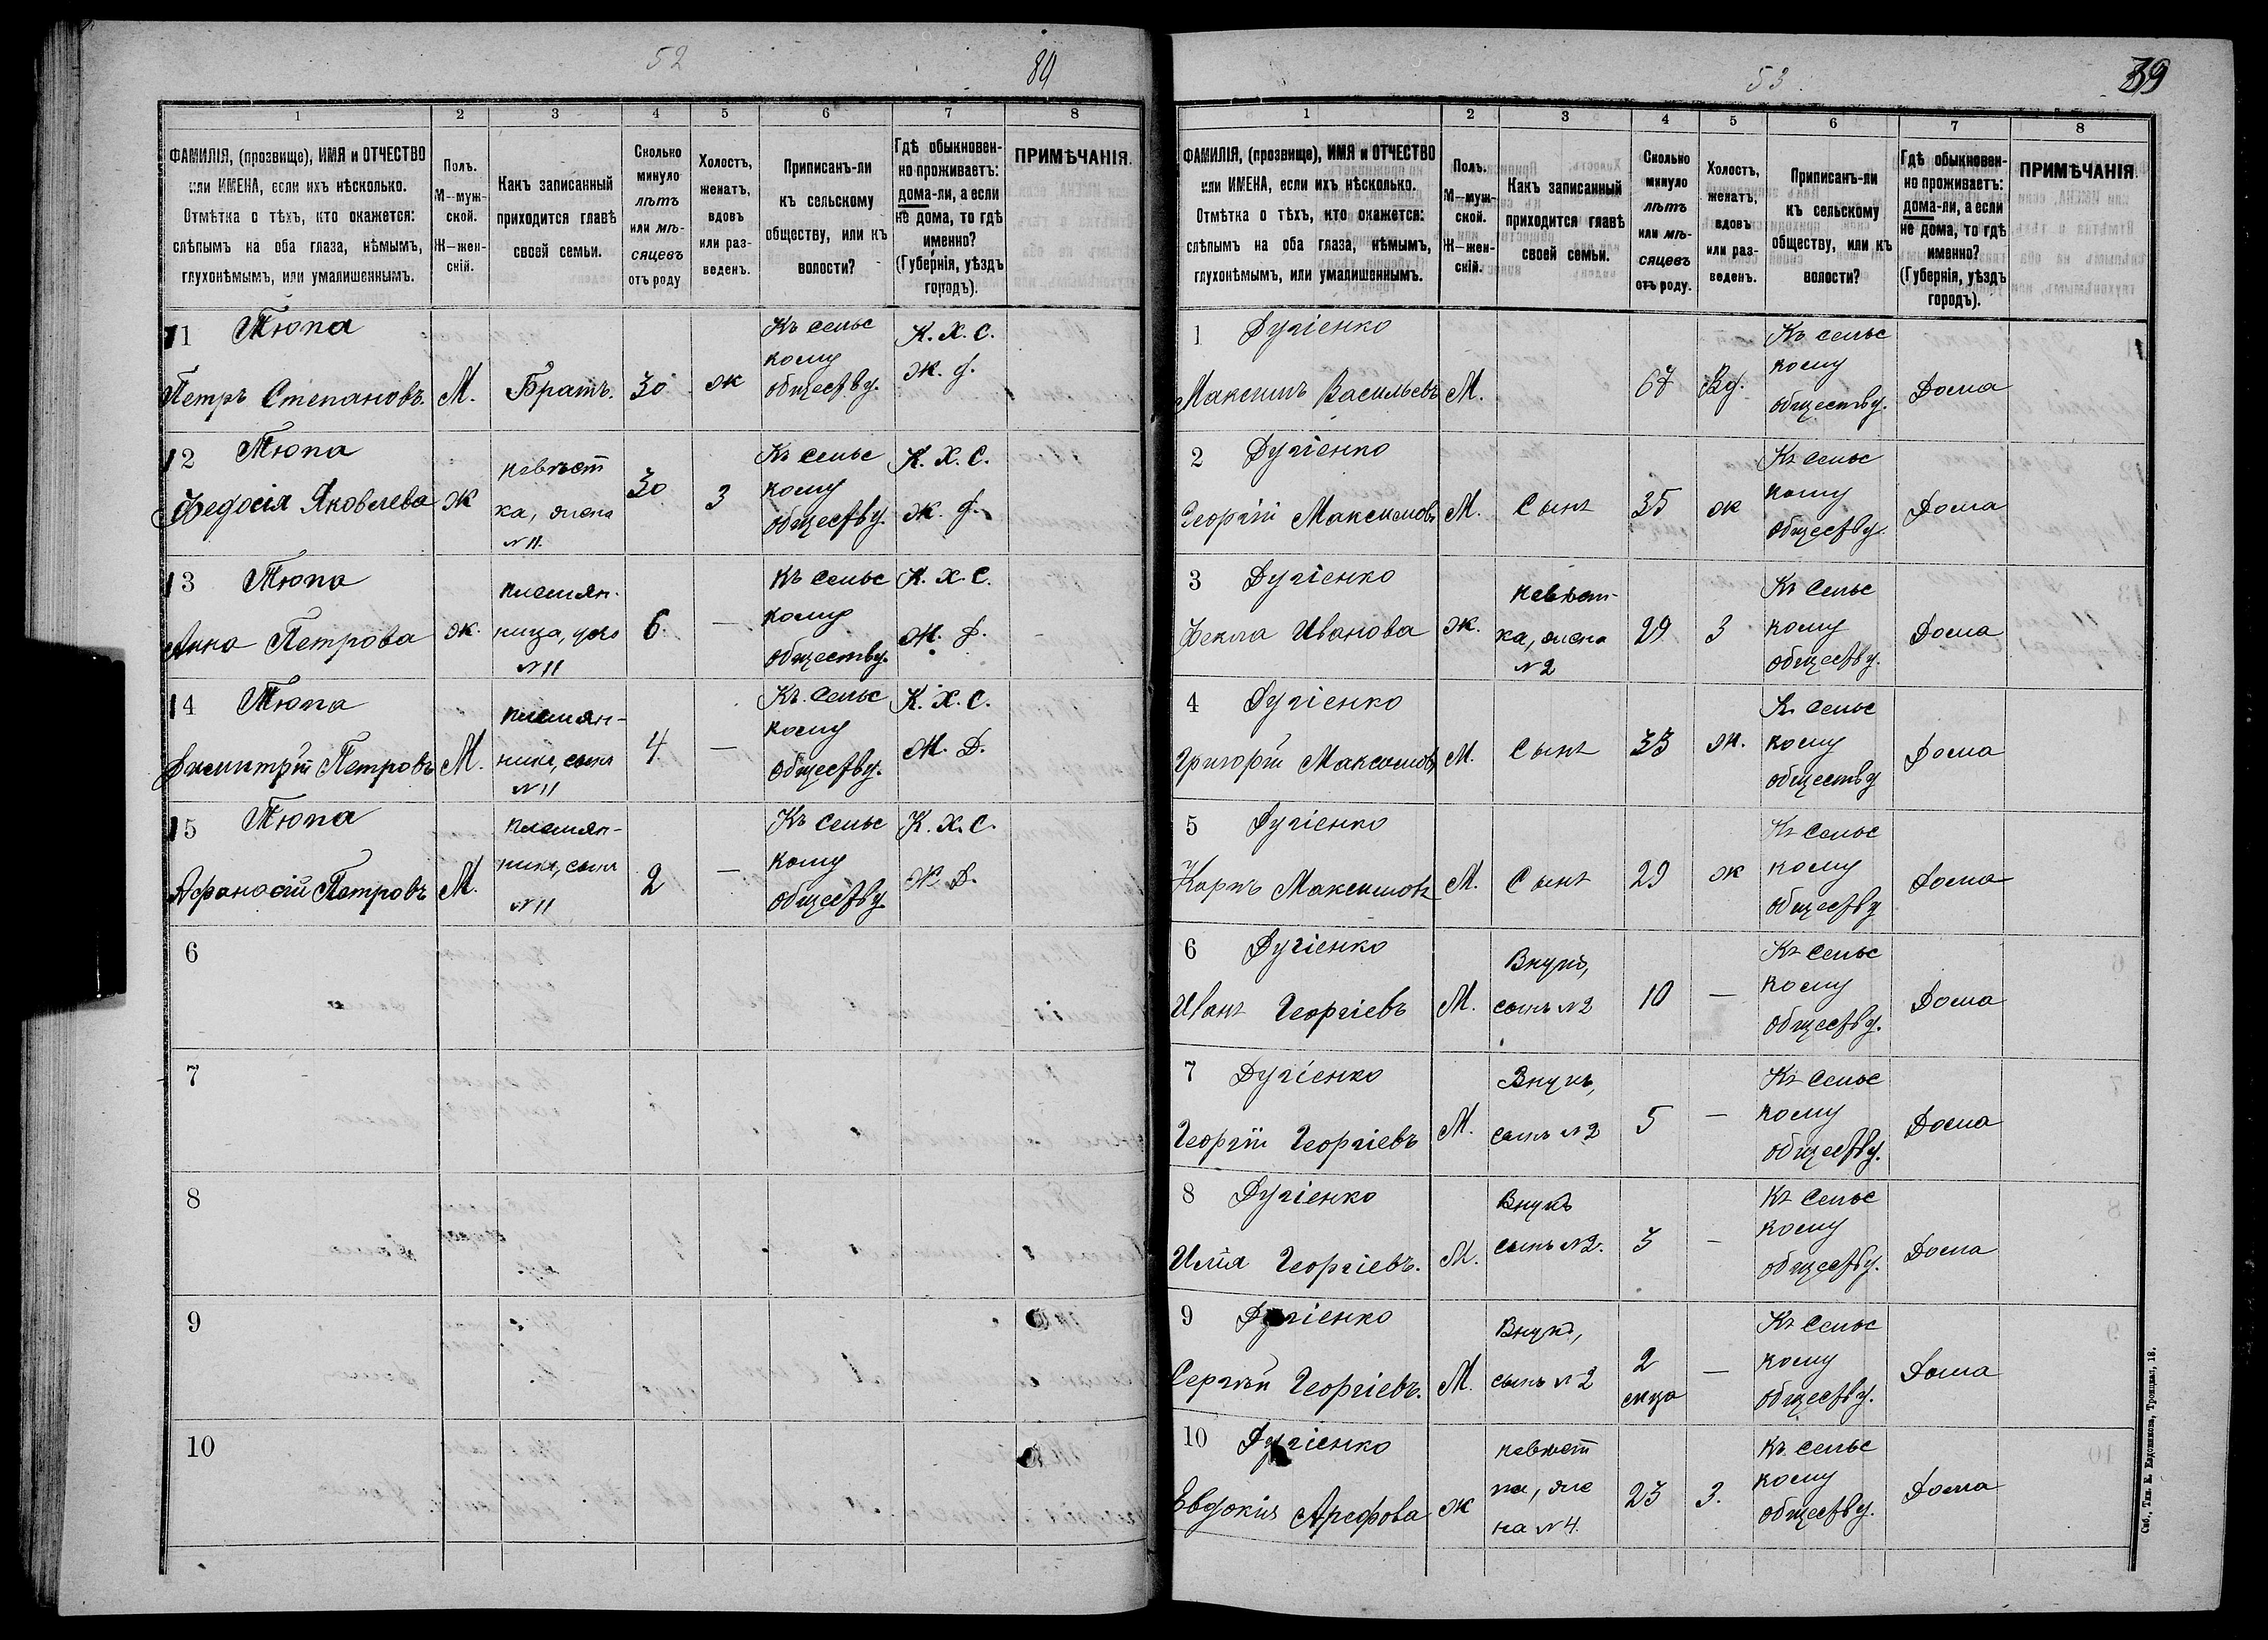 52
89
1 2 3 4 5 6 7 8
ФАМИЛІЯ, (прозвище), ИМЯ и ОТЧЕСТВО
или ИМЕНА, если ихъ нѣсколько.
Отмѣтка о тѣхъ, кто окажется:
слѣпымъ на оба глаза, нѣмымъ,
глухонѣмымъ, или умалишеннымъ.
Полъ.
М—муж-
ской.
Ж—жен-
скій.
Какъ записанный
приходится главѣ
своей семьи.
Сколько
минуло
лѣтъ
или мѣ-
сяцевъ
отъ роду
Холостъ,
женатъ,
вдовъ
или раз-
веденъ.
Приписанъ-ли
къ сельскому
обществу, или къ
волости?
Гдѣ обыкновен-
но проживаетъ:
дома-ли, а если
не дома, то гдѣ
именно?
(Губернія, уѣздъ
городъ).
ПРИМѢЧАНІЯ.
11 Тюпа
Петръ Степановъ.
М.
Братъ.
30
ж
Къ сельс
кому
обществу.
К. Х. С.
Ж. Д.
12 Тюпа
Федосія Яковлева
ж
невѣст
ка, жена
№ 11.
30
З
Къ сельс
кому
обществу.
К. Х. С.
Ж. Д.
13 Тюпа
Анна Петрова
ж.
племян-
ница, дочь
№ 11
6.
—
Къ сельс
кому
обществу.
К. Х. С.
Ж. Д.
14 Тюпа
Димитрій Петровъ
М.
племян-
никъ, сынъ
№ 11
4.
—
Къ сельс
кому
обществу.
К. Х. С.
Ж. Д.
15 Тюпа
Афанасій Петровъ
М.
племян-
никъ, сынъ
№ 11
2
—
Къ сельс
кому
обществу
К. Х. С.
Ж. Д.
6
7
8
9
10
53
39
1 2 3 4 5 6 7 8
ФАМИЛІЯ, (прозвище), ИМЯ и ОТЧЕСТВО
или ИМЕНА, если ихъ нѣсколько.
Отмѣтка о тѣхъ, кто окажется:
слѣпымъ на оба глаза, нѣмымъ,
глухонѣмымъ, или умалишеннымъ.
Полъ.
М—муж-
ской.
Ж—жен-
скій.
Какъ записанный
приходится главѣ
своей семьи.
Сколько
минуло
лѣтъ
или мѣ-
сяцевъ
отъ роду.
Холостъ,
женатъ,
вдовъ
или раз-
веденъ.
Приписанъ-ли
къ сельскому
обществу, или къ
волости?
Гдѣ обыкновен-
но проживаетъ:
дома-ли, а если
не дома, то гдѣ
именно?
(Губернія, уѣздъ
городъ).
ПРИМѢЧАНІЯ.
1 Дугіенко
Максимъ Васильевъ
М.
67
Вд.
Къ сельс
кому
обществу.
Дома
2 Дугіенко
Георгій Максимовъ
М.
Сынъ
35
ж
Къ сельс
кому
обществу.
Дома
3 Дугіенко
Фекла Иванова
ж.
невѣст-
ка, жена
№ 2
29
З
Къ сельс
кому
обществу.
Дома
4 Дугіенко
Григорій Максимовъ
М.
Сынъ
33
ж.
Къ сельс
кому
обществу
Дома
5 Дугіенко
Карпъ Максимовъ
М.
Сынъ
29
ж
Къ сельс
кому
обществу
Дома
6 Дугіенко
Иванъ Георгіевъ
М.
Внукъ,
сынъ № 2
10
—
Къ сельс
кому
обществу.
Дома
7 Дугіенко
Георгій Георгіевъ
М.
Внукъ,
сынъ № 2
5
—
Къ сельс
кому
обществу.
Дома
8 Дугіенко
Илія Георгіевъ.
М.
Внукъ
сынъ № 2.
3
—
Къ сельс
кому
обществу.
Дома
9 Дугіенко
Сергѣй Георгіевъ.
М.
Внукъ,
сынъ № 2
2
мца
—
Къ сельс
кому
обществу.
Дома
10 Дугіенко
Евдокія Арефова
ж
невѣст
ка, же
на № 4.
23
З.
Къ сельс
кому
обществу.
Дома
Спб., Тип. Е. Евдокимова, Троицкая, 18.